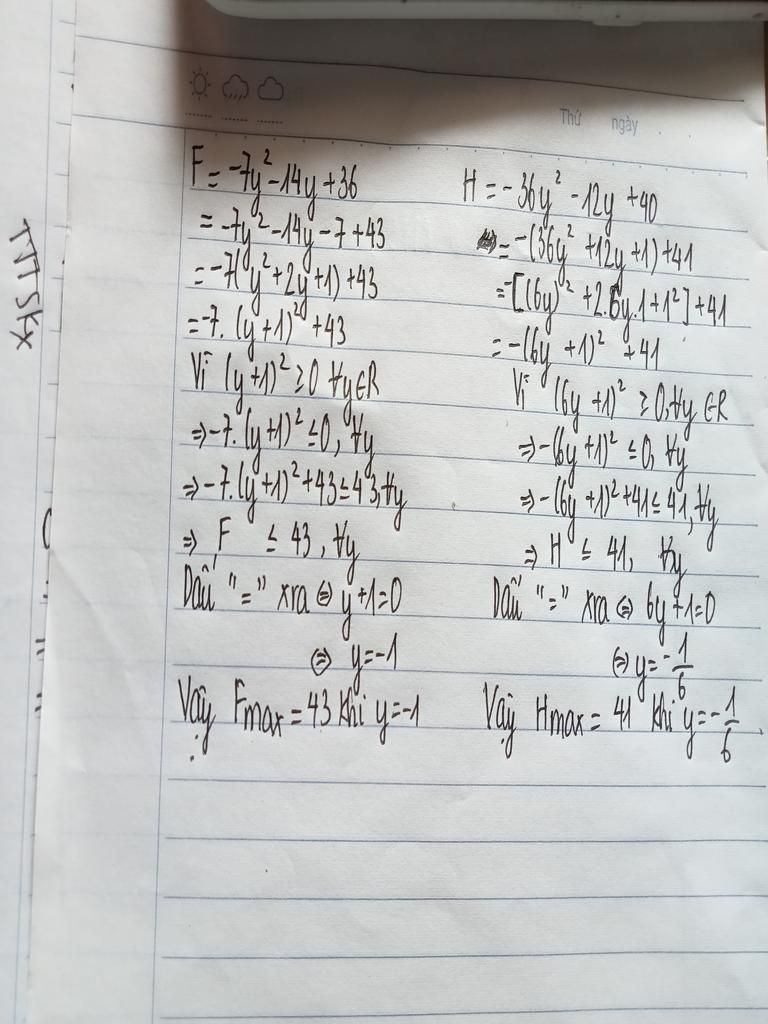 Thứ ngày
F = -7y² - 14y + 36
= -7y² - 14y - 7 + 43
= -7(y² + 2y + 1) + 43
= -7. (y + 1)² + 43
Vì (y + 1)² ≥ 0 ∀y∈R
⇒ -7. (y + 1)² ≤ 0, ∀y
⇒ -7. (y + 1)² + 43 ≤ 43, ∀y
⇒ F ≤ 43, ∀y
Dấu "=" xra ⇔ y + 1 = 0
⇔ y = -1
Vậy Fmax = 43 khi y = -1
H = -36y² - 12y + 40
= -(36y² + 12y + 1) + 41
= -[(6y)² + 2.6y.1 + 1²] + 41
= -(6y + 1)² + 41
Vì (6y + 1)² ≥ 0, ∀y ∈R
⇒ -(6y + 1)² ≤ 0, ∀y
⇒ -(6y + 1)² + 41 ≤ 41, ∀y
⇒ H ≤ 41, ∀y
Dấu "=" xra ⇔ 6y + 1 = 0
⇔ y = -1/6
Vậy Hmax = 41 khi y = -1/6